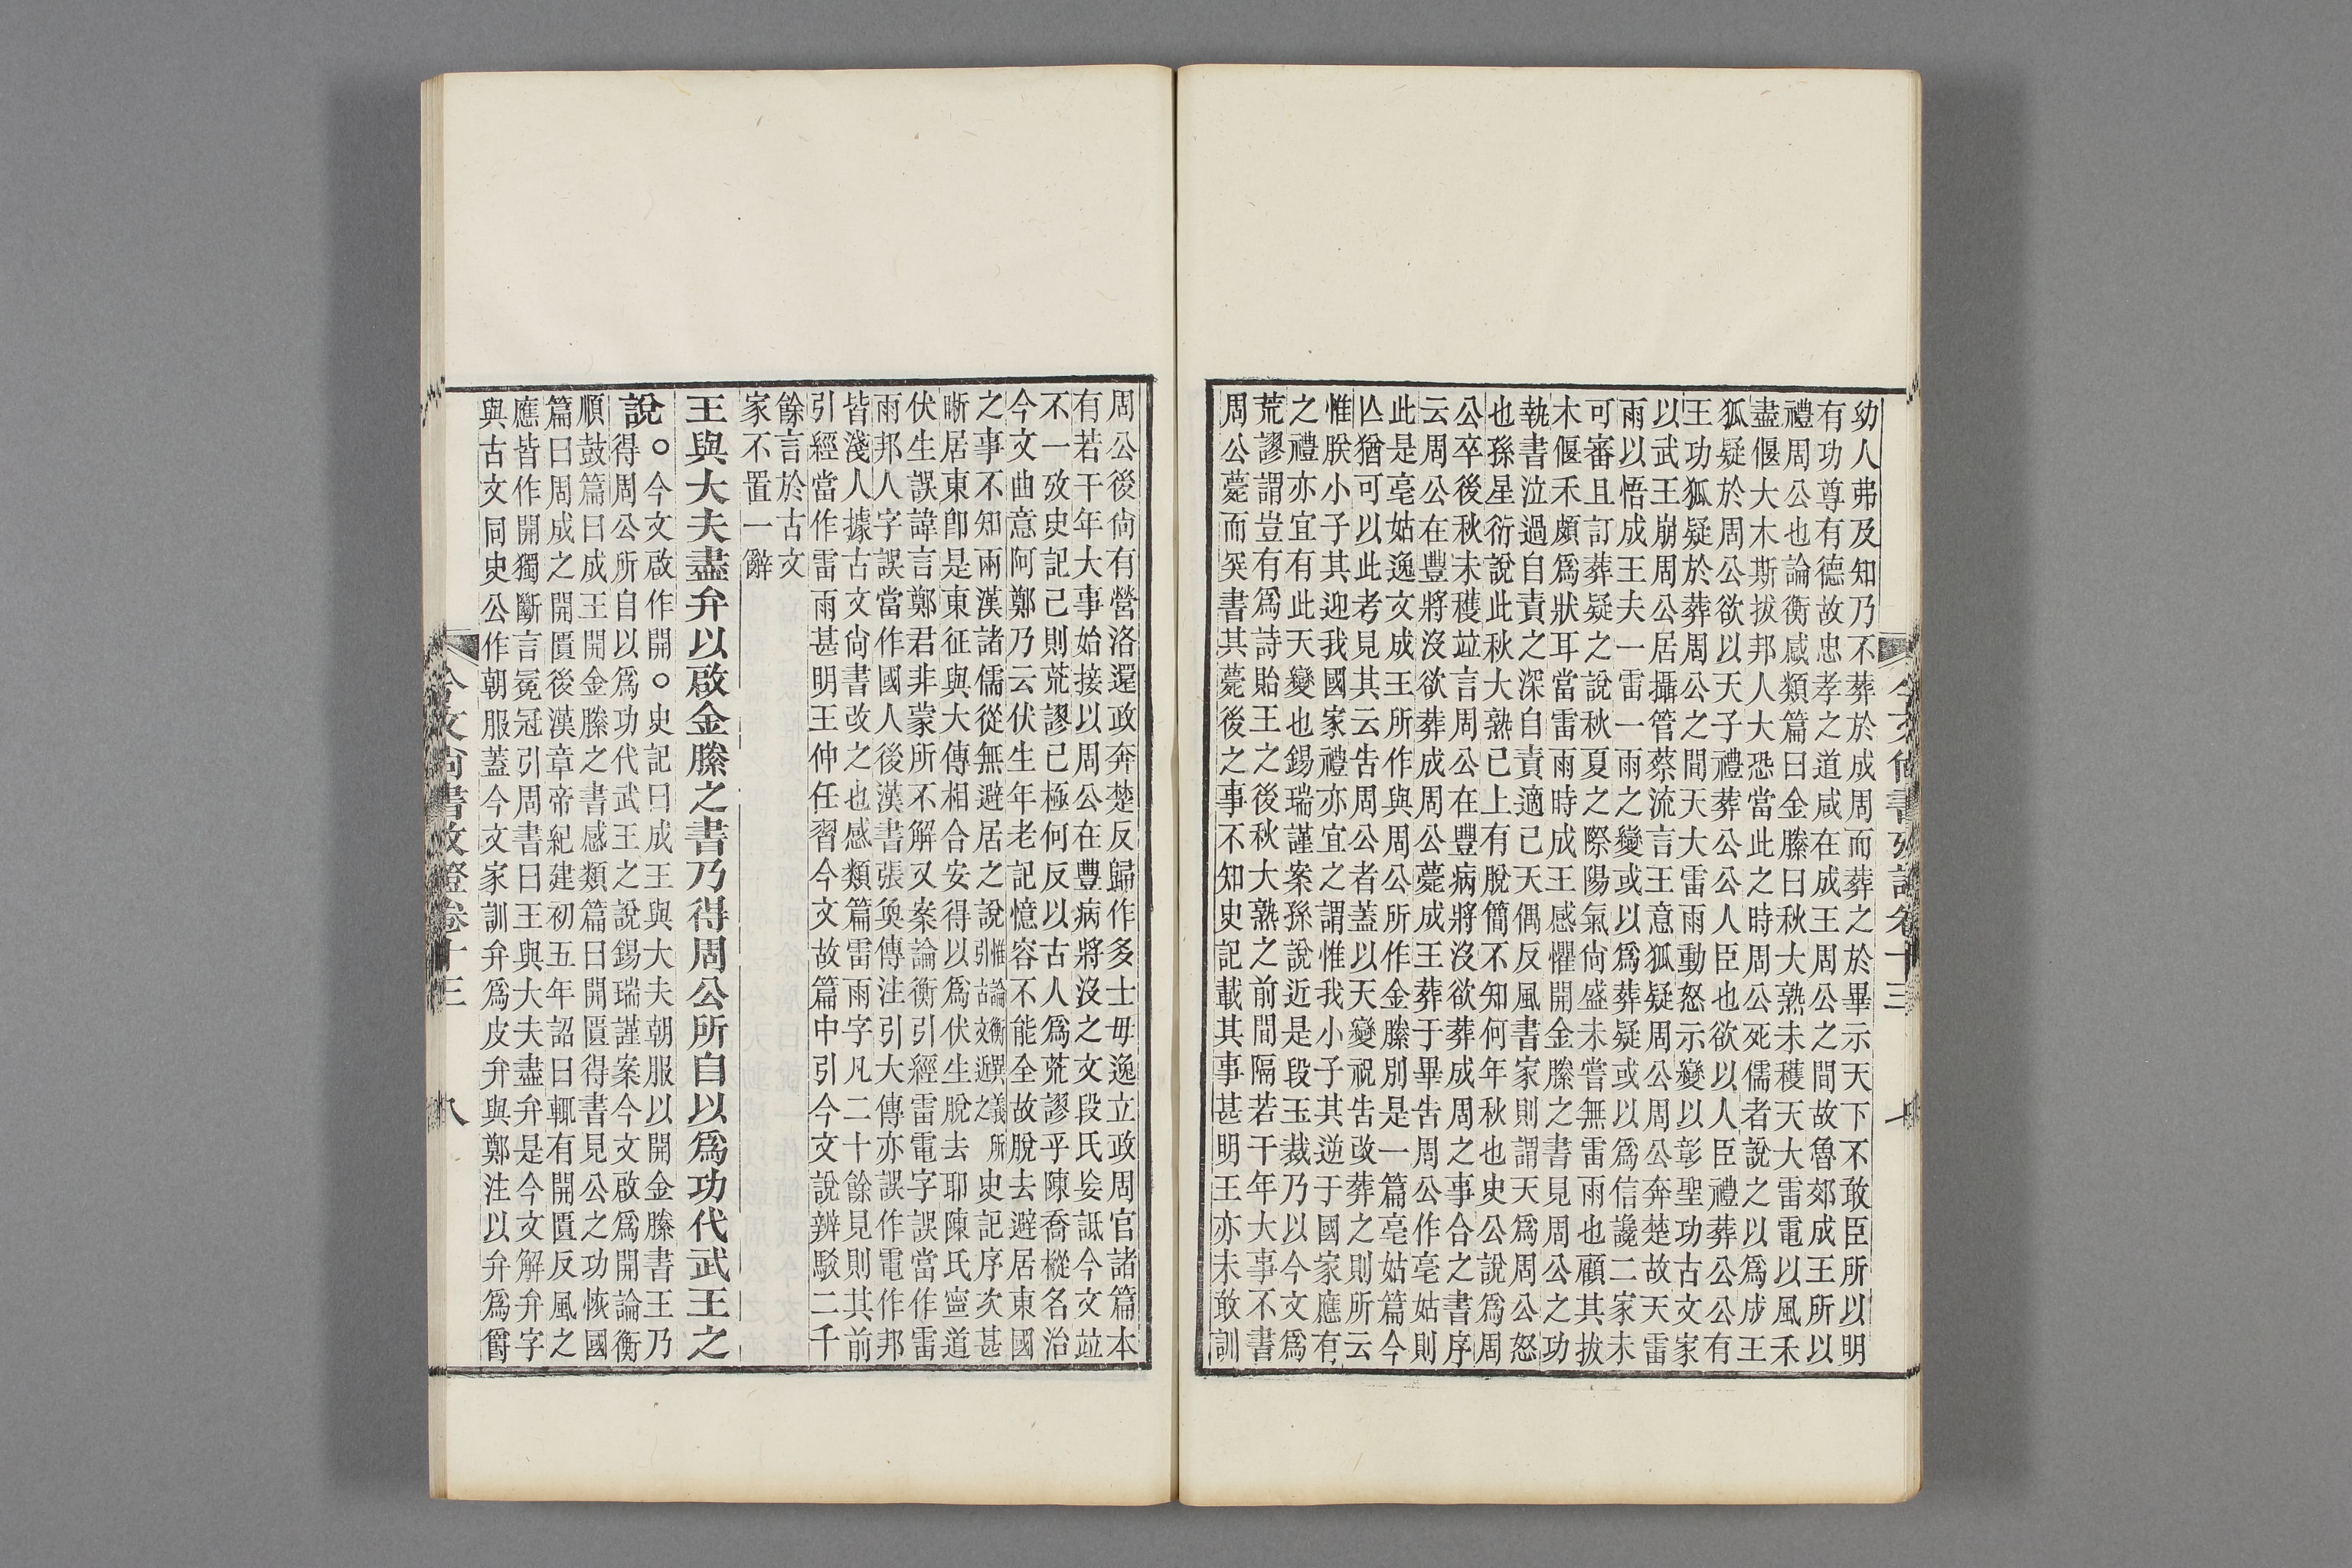 幼人弗及知乃不葬於成周而葬之於畢示天下不敢臣所以明
有功尊有德故忠孝之道咸在成王周公之間故魯郊成王所以
禮周公也論衡感類篇曰金縢曰秋大熟未穫天大雷電以風禾
盡偃大木斯拔邦人大恐當此之時周公死儒者說之以爲成王
狐疑於周公欲以天子禮葬公公人臣也欲以人臣禮葬公公有
王功狐疑於葬周公之間天大雷雨動怒示變以彰聖功古文家
以武王崩周公居攝管蔡流言王意狐疑周公周公奔楚故天雷
雨以悟成王夫一雷一雨之變或以爲葬疑或以爲信讒二家未
可審且訂葬疑之說秋夏之際陽氣尙盛未嘗無雷雨也顧其拔
木偃禾頗爲狀耳當雷雨時成王感懼開金縢之書見周公之功
執書泣過自責之深自責適已天偶反風書家則謂天爲周公怒
也孫星衍說此秋大熟已上有脫簡不知何年秋也史公說爲周
公卒後秋未穫竝言周公在豐病將沒欲葬成周之事合之書序
云周公在豐將沒欲葬成周公薨成王葬于畢告周公作亳姑則
此是亳姑逸文成王所作與周公所作金縢別是一篇亳姑篇今
亾猶可以此考見其云告周公者蓋以天變祝告改葬之則所云
惟朕小子其迎我國家禮亦宜之謂惟我小子其逆于國家應有
之禮亦宜有此天變也錫瑞謹案孫說近是段玉裁乃以今文爲
荒謬謂豈有爲詩貽王之後秋大熟之前間隔若干年大事不書
周公薨而突書其薨後之事不知史記載其事甚明王亦未敢訓
今文尙書攷證卷十三
七
周公後尙有營洛還政奔楚反歸作多士毋逸立政周官諸篇本
有若干年大事始接以周公在豐病將沒之文段氏妄詆今文竝
不一攷史記己則荒謬已極何反以古人爲荒謬乎陳喬樅名治
今文曲意阿鄭乃云伏生年老記憶容不能全故脫去避居東國
之事不知兩漢諸儒從無避居之說惟論衡異義所引古文近之史記序次甚
晣居東卽是東征與大傳相合安得以爲伏生脫去耶陳氏寧道
伏生誤諱言鄭君非蒙所不解又案論衡引經雷電字誤當作雷
雨邦人字誤當作國人後漢書張奐傳注引大傳亦誤作電作邦
皆淺人據古文尙書改之也感類篇雷雨字凡二十餘見則其前
引經當作雷雨甚明王仲任習今文故篇中引今文說辨駁二千
餘言於古文
家不置一辭
王與大夫盡弁以啟金縢之書乃得周公所自以爲功代武王之
說○今文啟作開○史記曰成王與大夫朝服以開金縢書王乃
得周公所自以爲功代武王之說錫瑞謹案今文啟爲開論衡
順鼓篇曰成王開金縢之書感類篇曰開匱得書見公之功恢國
篇曰周成之開匱後漢章帝紀建初五年詔曰輒有開匱反風之
應皆作開獨斷言冕冠引周書曰王與大夫盡弁是今文解弁字
與古文同史公作朝服蓋今文家訓弁爲皮弁與鄭注以弁爲爵
今文尙書攷證卷十三
八